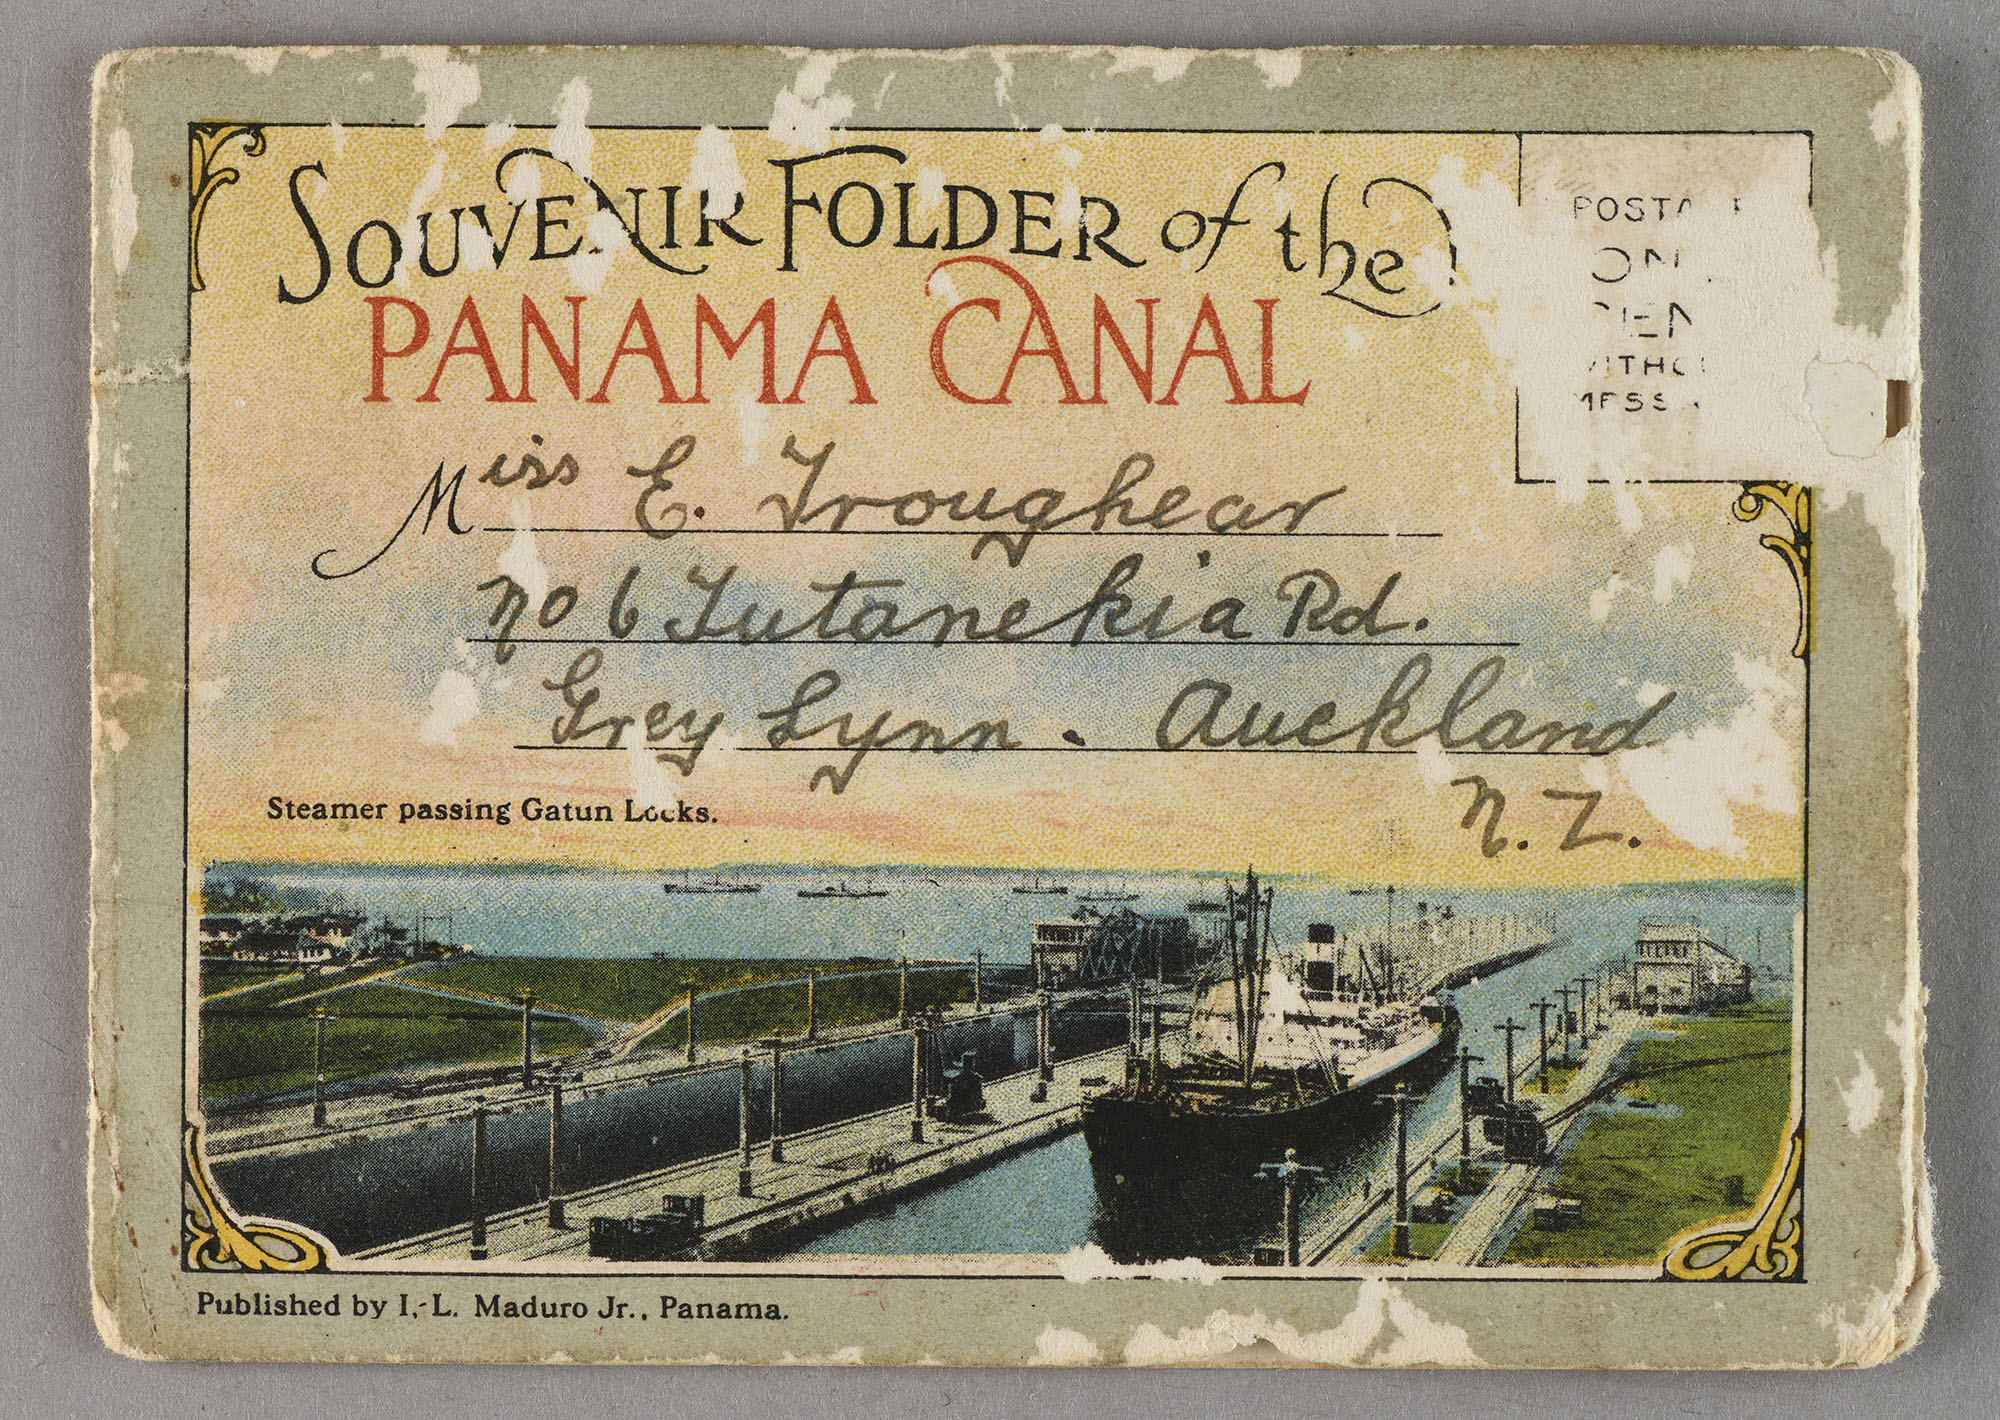 SOUVENIR FOLDER of the
PANAMA CANAL
POSTA
ON
WITHO
MESSA
Miss E. Troughear
no 6 Tutanekia Rd.
Grey Lynn. Auckland
N.Z.
Steamer passing Gatun Locks.
Published by I. L. Maduro Jr., Panama.